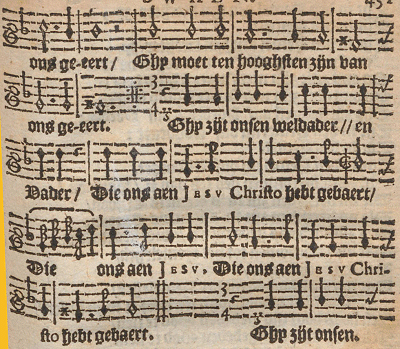 ons ge-eert / Ghy moet ten hooghsten zijn van
ons ge-eert. Ghy zijt onsen weldader // en
Vader / Die ons aen JESV Christo hebt gebaert /
Die ons aen JESV, Die ons aen JESV Chri-
sto hebt gebaert. Ghy zijt onsen.